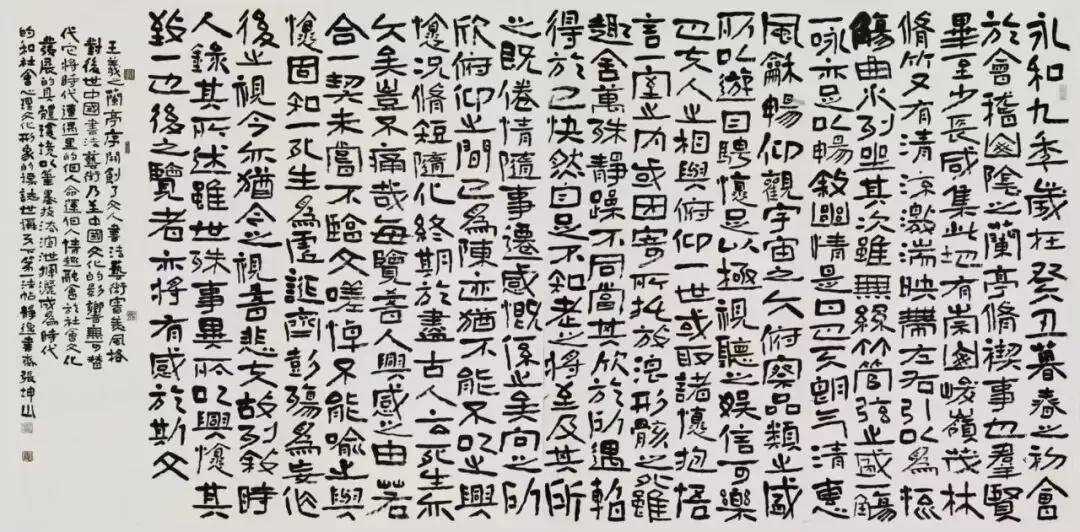 永和九年歲在癸丑暮春之初會
於會稽山陰之蘭亭脩禊事也羣賢
畢至少長咸集此地有崇山峻嶺茂林
脩竹又有清流激湍映帶左右引以為流
觴曲水列坐其次雖無絲竹管弦之盛一觴
一咏亦足以暢敘幽情是日也天朗氣清惠
風龢暢仰觀宇宙之大俯察品類之盛
所以遊目騁懷足以極視聽之娛信可樂
也夫人之相與俯仰一世或取諸懷抱悟
言一室之內或因寄所託放浪形骸之外雖
趣舍萬殊靜躁不同當其欣於所遇暫
得於己快然自足不知老之將至及其所
之既倦情隨事遷感慨係之矣向之所
欣俯仰之間已為陳迹猶不能不以之興
懷況脩短隨化終期於盡古人云死生亦
大矣豈不痛哉每覽昔人興感之由若
合一契未嘗不臨文嗟悼不能喻之與
懷固知一死生為虛誕齊彭殤為妄作
後之視今亦猶今之視昔悲夫故列敘時
人錄其所述雖世殊事異所以興懷其
致一也後之覽者亦將有感於斯文
王羲之蘭亭序開創了文人書法藝術審美風格
對後世中國書法藝術乃至中國文化的影響無可替
代它將時代遭遇里的個人命運個人情趣融會於社會文化
發展的具體環境以筆墨技法渲泄揮灑成為時代
的和社會心理文化形象的標誌世稱天下第一法帖靜逸齋張坤山